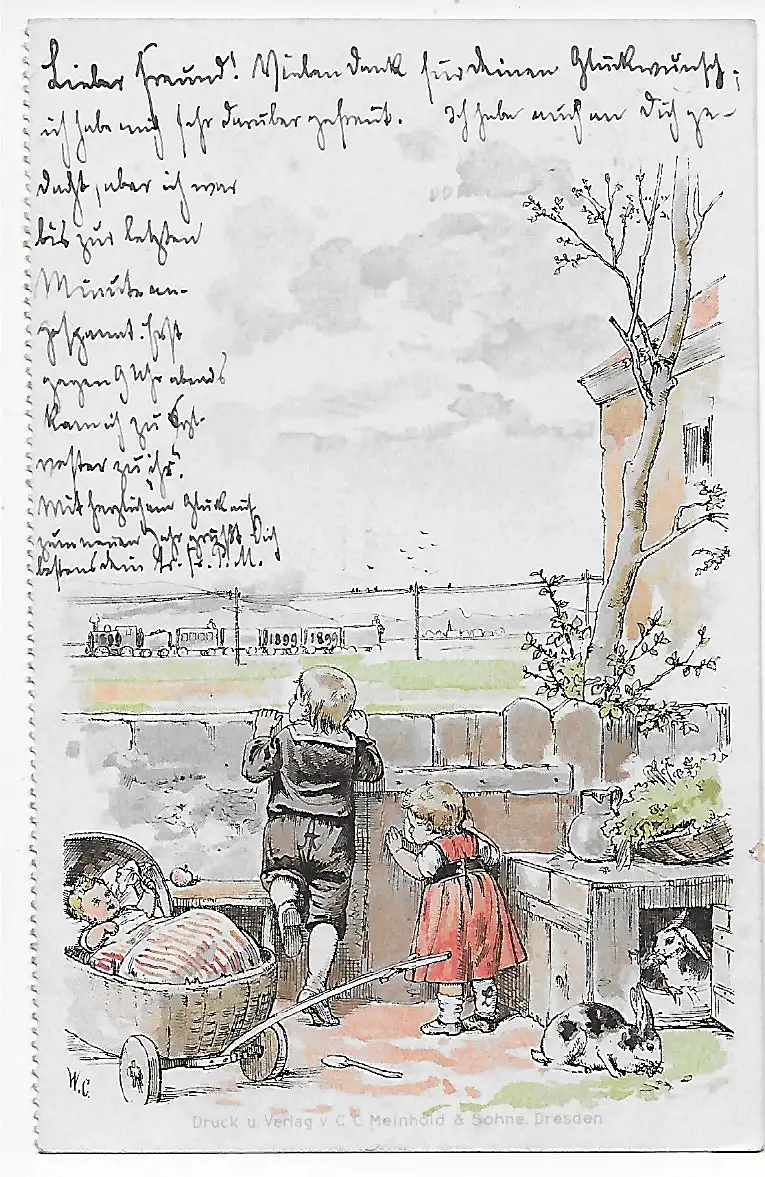 Lieber Freund! Vielen Dank für deinen Glückwunsch;
ich habe mich sehr darüber gefreut. Ich habe auch an Dich ge-
dacht, aber ich war
bis zur letzten
Minute an-
gespannt. Erst
gegen 9 Uhr abends
kam ich zu Syl-
vester zu
Mit herzlichem Glückauf
zum neuen Jahr grüßt Dich
bestens dein Fr.
1899 1899 1899
W.C.
Druck u Verlag v. C C Meinhold & Söhne, Dresden